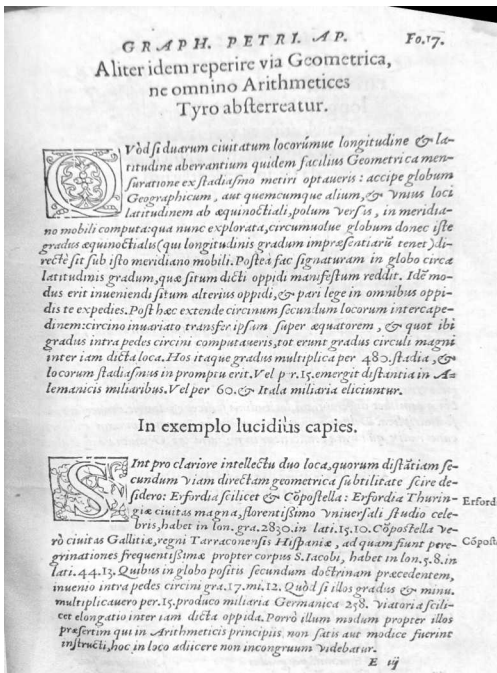 GRAPH. PETRI. AP. Fo.17.
Aliter idem reperire via Geometrica,
ne omnino Arithmetices
Tyro absterreatur.
QVòd si duarum ciuitatum locorúmue longitudine & la-
titudine aberrantium quidem facilius Geometrica men-
suratione ex stadiasmo metiri optaueris: accipe globum
Geographicum, aut quemcumque alium, & vnius loci
latitudinem ab æquinoctiali, polum versus, in meridia-
no mobili computa: qua nunc explorata, circumuolue globum donec iste
gradus æquinoctialis (qui longitudinis gradum impræsentiarū tenet) di-
rectè sit sub isto meridiano mobili. Postea fac signaturam in globo circa
latitudinis gradum, quæ situm dicti oppidi manifestum reddit. Idē mo-
dus erit inueniendi situm alterius oppidi, & pari lege in omnibus oppi-
dis te expedies. Post hæc extende circinum secundum locorum intercape-
dinem: circino inuariato transfer ipsum super æquatorem, & quot ibi
gradus intra pedes circini computaueris, tot erunt gradus circuli magni
inter iam dicta loca. Hos itaque gradus multiplica per 480. stadia, &
locorum stadiasmus in promptu erit. Vel p r. 15. emergit distantia in A-
lemanicis miliaribus. Vel per 60. & Itala miliaria eliciuntur.
In exemplo lucidiùs capies.
SInt pro clariore intellectu duo loca, quorum distātiam se-
cundum viam directam geometrica subtilitate scire de-
sidero: Erfordia scilicet & Cōpostella: Erfordia Thurin-
giæ ciuitas magna, florentissimo vniuersali studio cele-
bris, habet in lon. gra. 2830. in lati. 15.10. Cōpostella ve-
rò ciuitas Gallitiæ, regni Tarraconensis Hispaniæ, ad quam fiunt pere-
grinationes frequentissimæ propter corpus S. Iacobi, habet in lon. 5.8. in
lati. 44.13. Quibus in globo positis secundum doctrinam præcedentem,
inuenio intra pedes circini gra. 17. mi. 12. Quòd si illos gradus & minu.
multiplicauero per. 15. produco miliaria Germanica 258. viatoria scili-
cet elongatio inter iam dicta oppida. Porrò illum modum propter illos
præsertim qui in Arithmeticis principiis non satis aut modice fuerint
instructi, hoc in loco adiicere non incongruum videbatur.
Erford
Cópost
E iij